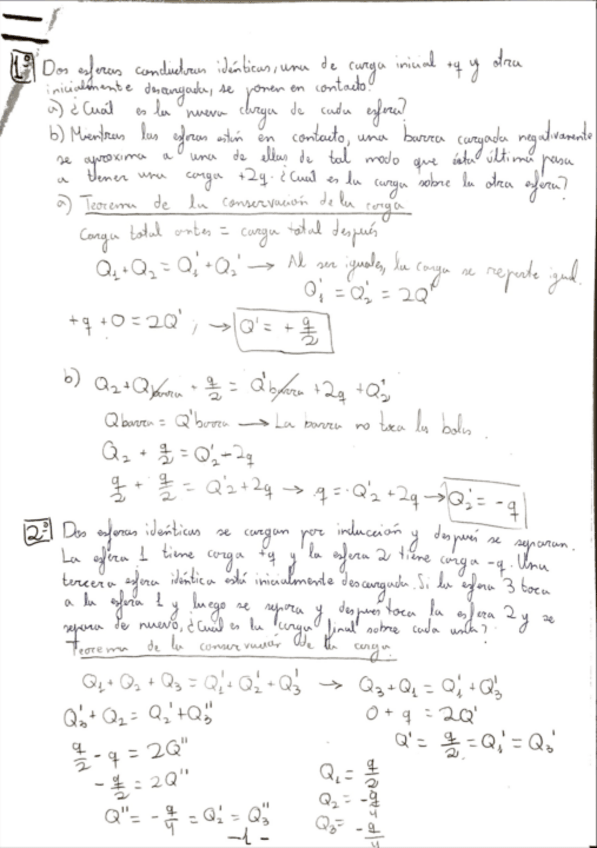 1º Dos esferas conductoras idénticas, una de carga inicial +q y otra
inicialmente descargada, se ponen en contacto.
a) ¿Cuál es la nueva carga de cada esfera?
b) Mientras las esferas están en contacto, una barra cargada negativamente
se aproxima a una de ellas de tal modo que ésta última pasa
a tener una carga +2q. ¿Cuál es la carga sobre la otra esfera?
a) Teorema de la conservación de la carga
Carga total antes = carga total después
Q₁ + Q₂ = Q₁' + Q₂' → Al ser iguales, la carga se reparte igual.
Q₁' = Q₂' = 2Q'
+q + 0 = 2Q' ; → Q' = + q/2
b) Q₂ + Qbarra + q/2 = Q'barra + 2q + Q₂'
Qbarra = Q'barra → La barra no toca las bolas.
Q₂ + q/2 = Q₂' + 2q
q/2 + q/2 = Q₂' + 2q → q = Q₂' + 2q → Q₂' = -q
2º Dos esferas idénticas se cargan por inducción y después se separan.
La esfera 1 tiene carga +q y la esfera 2 tiene carga -q. Una
tercera esfera idéntica está inicialmente descargada. Si la esfera 3 toca
a la esfera 1 y luego se separa y después toca la esfera 2 y se
separa de nuevo, ¿Cuál es la carga final sobre cada una?
Teorema de la conservación de la carga
Q₁ + Q₂ + Q₃ = Q₁' + Q₂' + Q₃' → Q₃ + Q₁ = Q₁' + Q₃'
Q₃' + Q₂ = Q₂' + Q₃'' 0 + q = 2Q'
q/2 - q = 2Q'' Q' = q/2 = Q₁' = Q₃'
-q/2 = 2Q'' Q₁ = q/2
Q'' = -q/4 = Q₂' = Q₃'' Q₂ = -q/4
Q₃ = -q/4
-1-